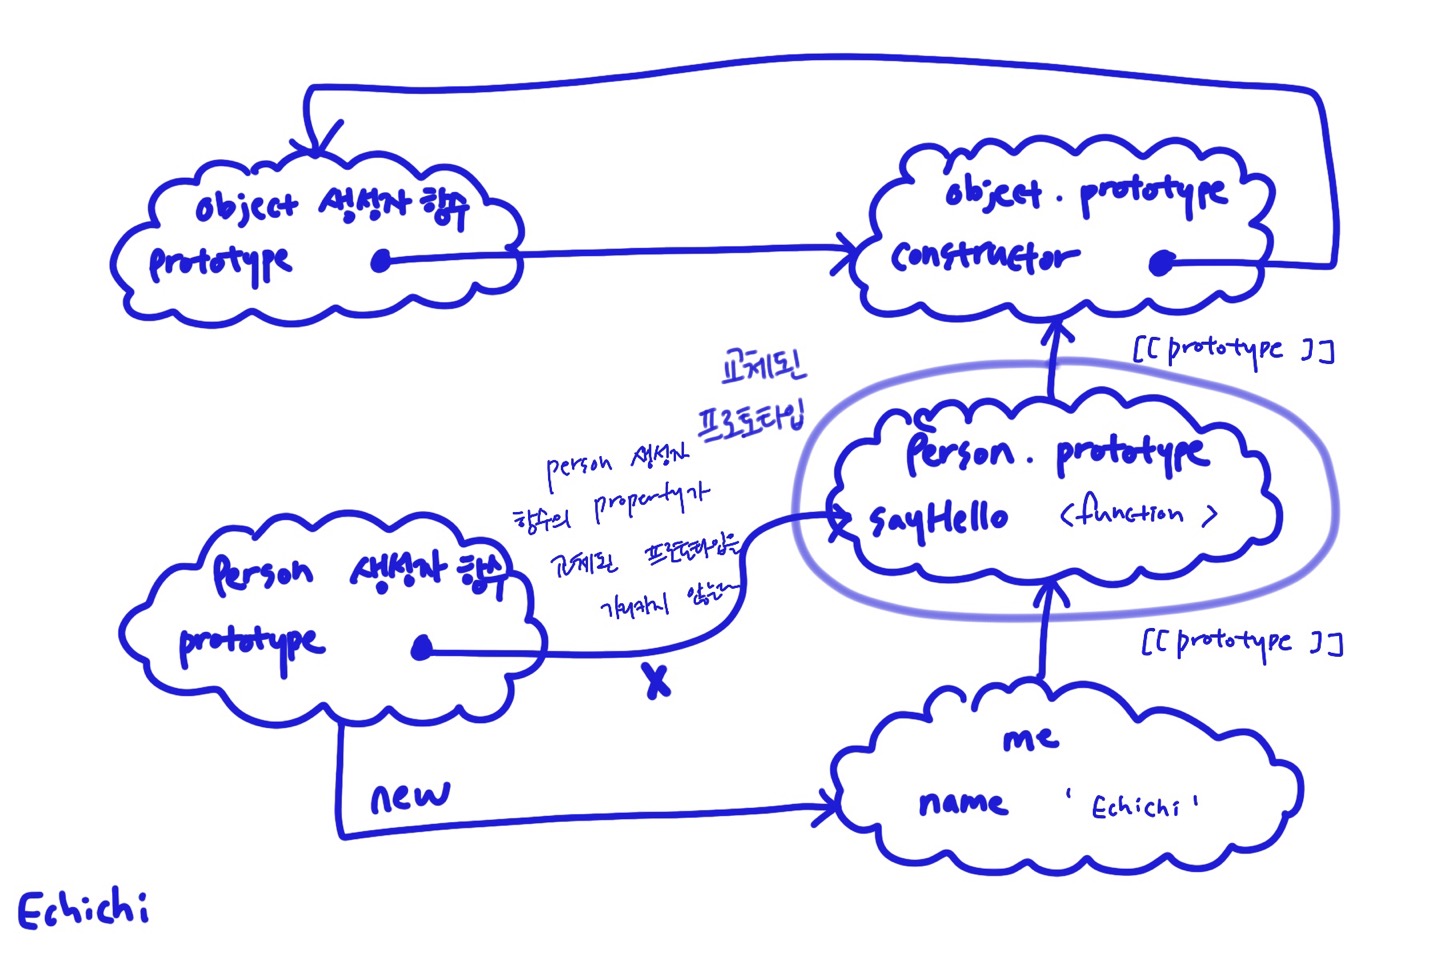 object 생성자 함수
prototype
object . prototype
constructor
[[ prototype ]]
교체된
프로토타입
person 생성자
함수의 property가
교체된 프로토타입을
가리키지 않는다
Person . prototype
sayHello <function>
Person 생성자 함수
prototype
X
[[ prototype ]]
new
me
name ' Echichi '
Echichi